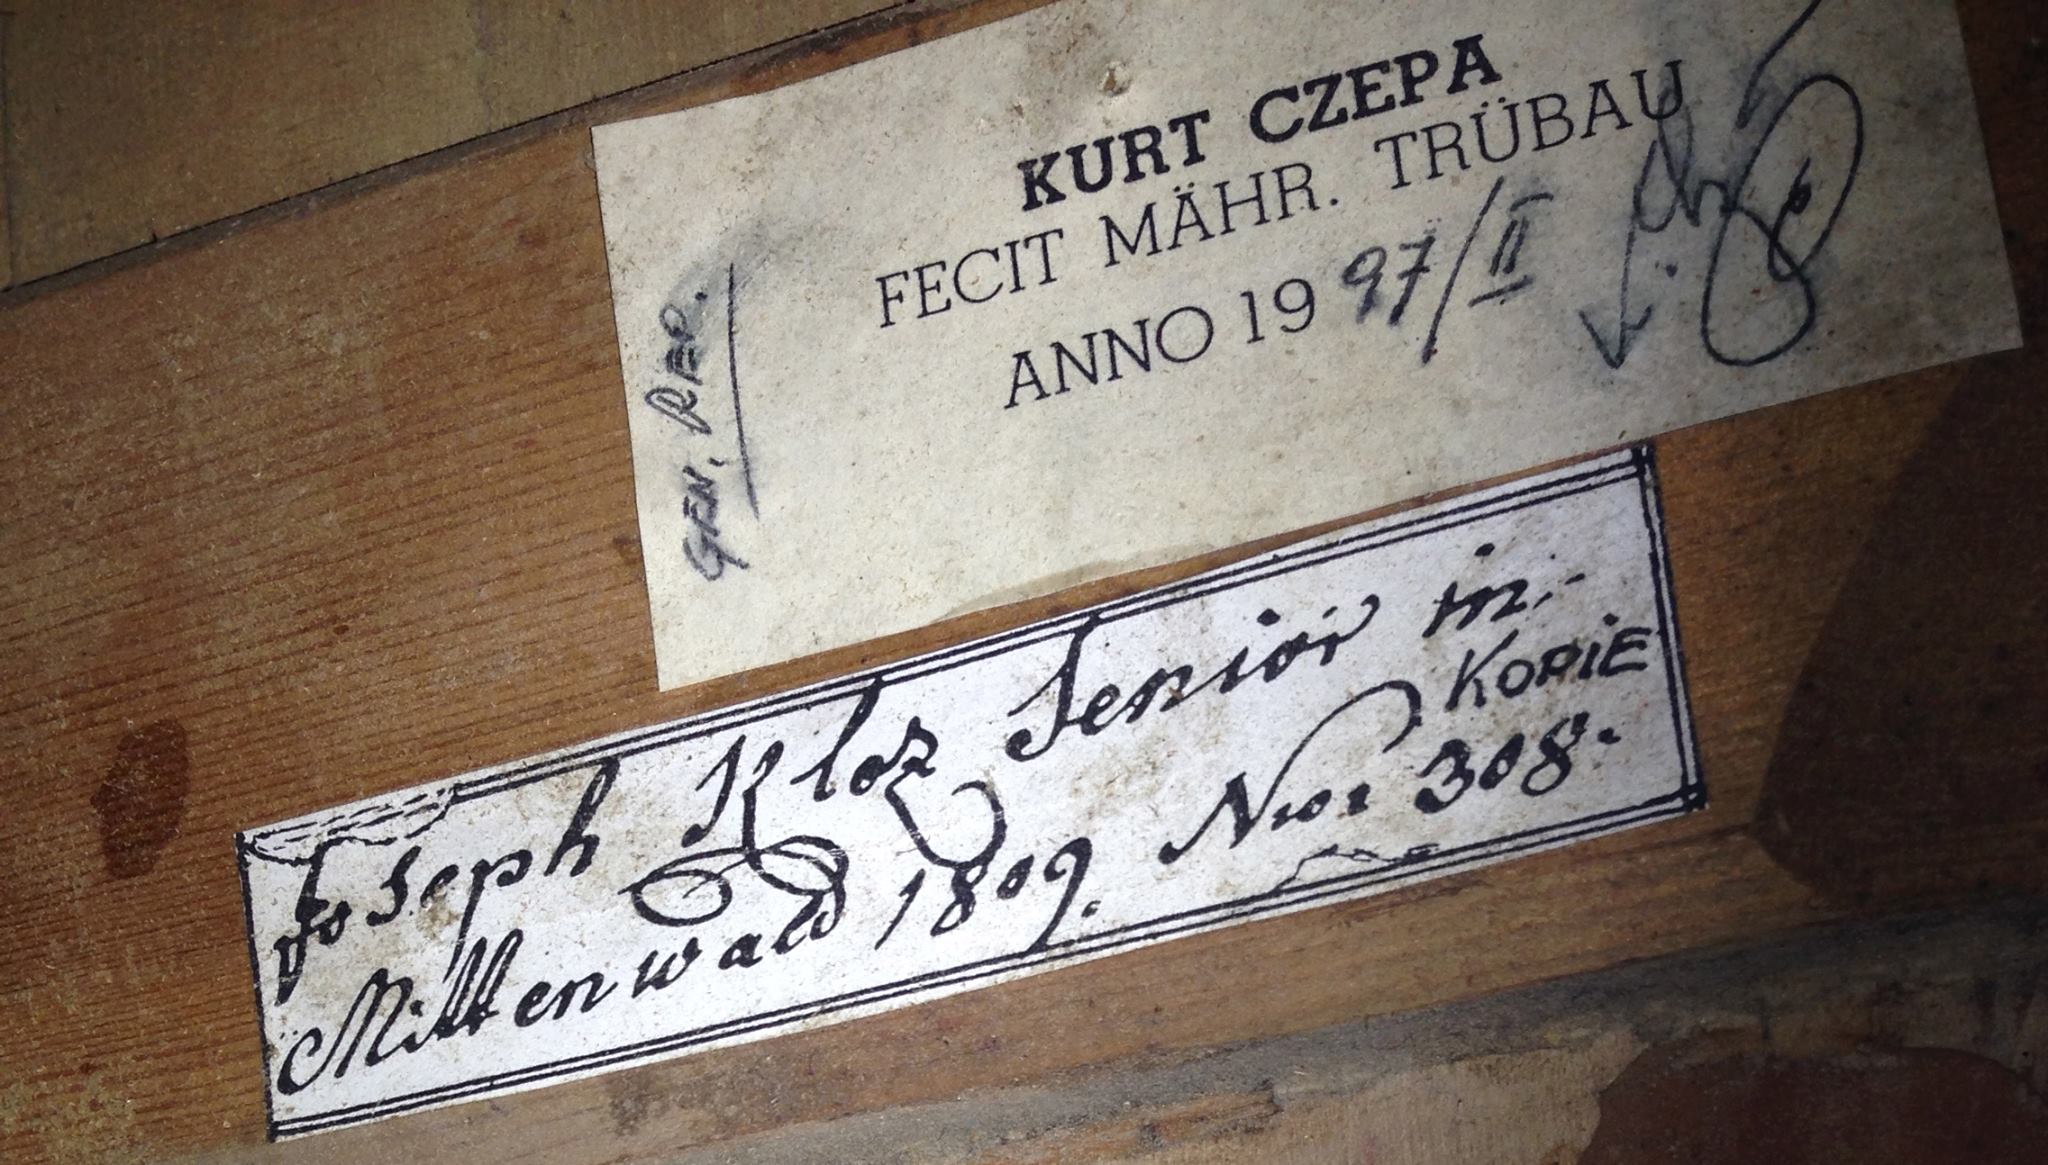 KURT CZEPA
FECIT MÄHR. TRÜBAU
ANNO 1997/II
GEN. REP.
Joseph Kloz Senior in.
KOPIE
Mittenwald 1809. Nro 308.